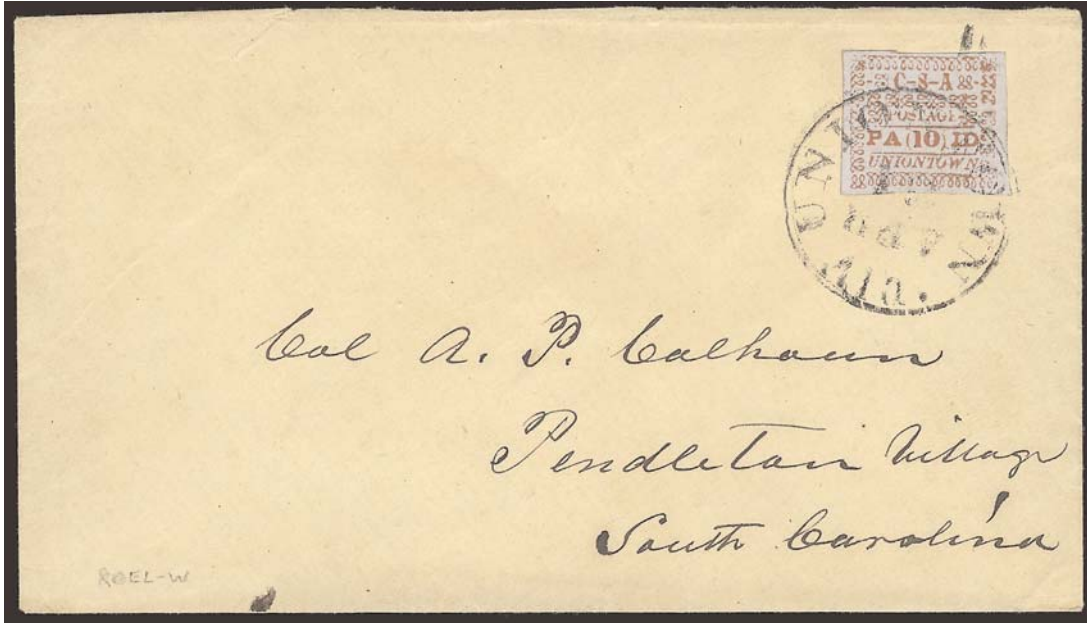 C-S-A
POSTAGE
PA(10)ID
UNIONTOWN
UNIONTOWN
Col A. P. Calhoun
Pendleton Village
South Carolina